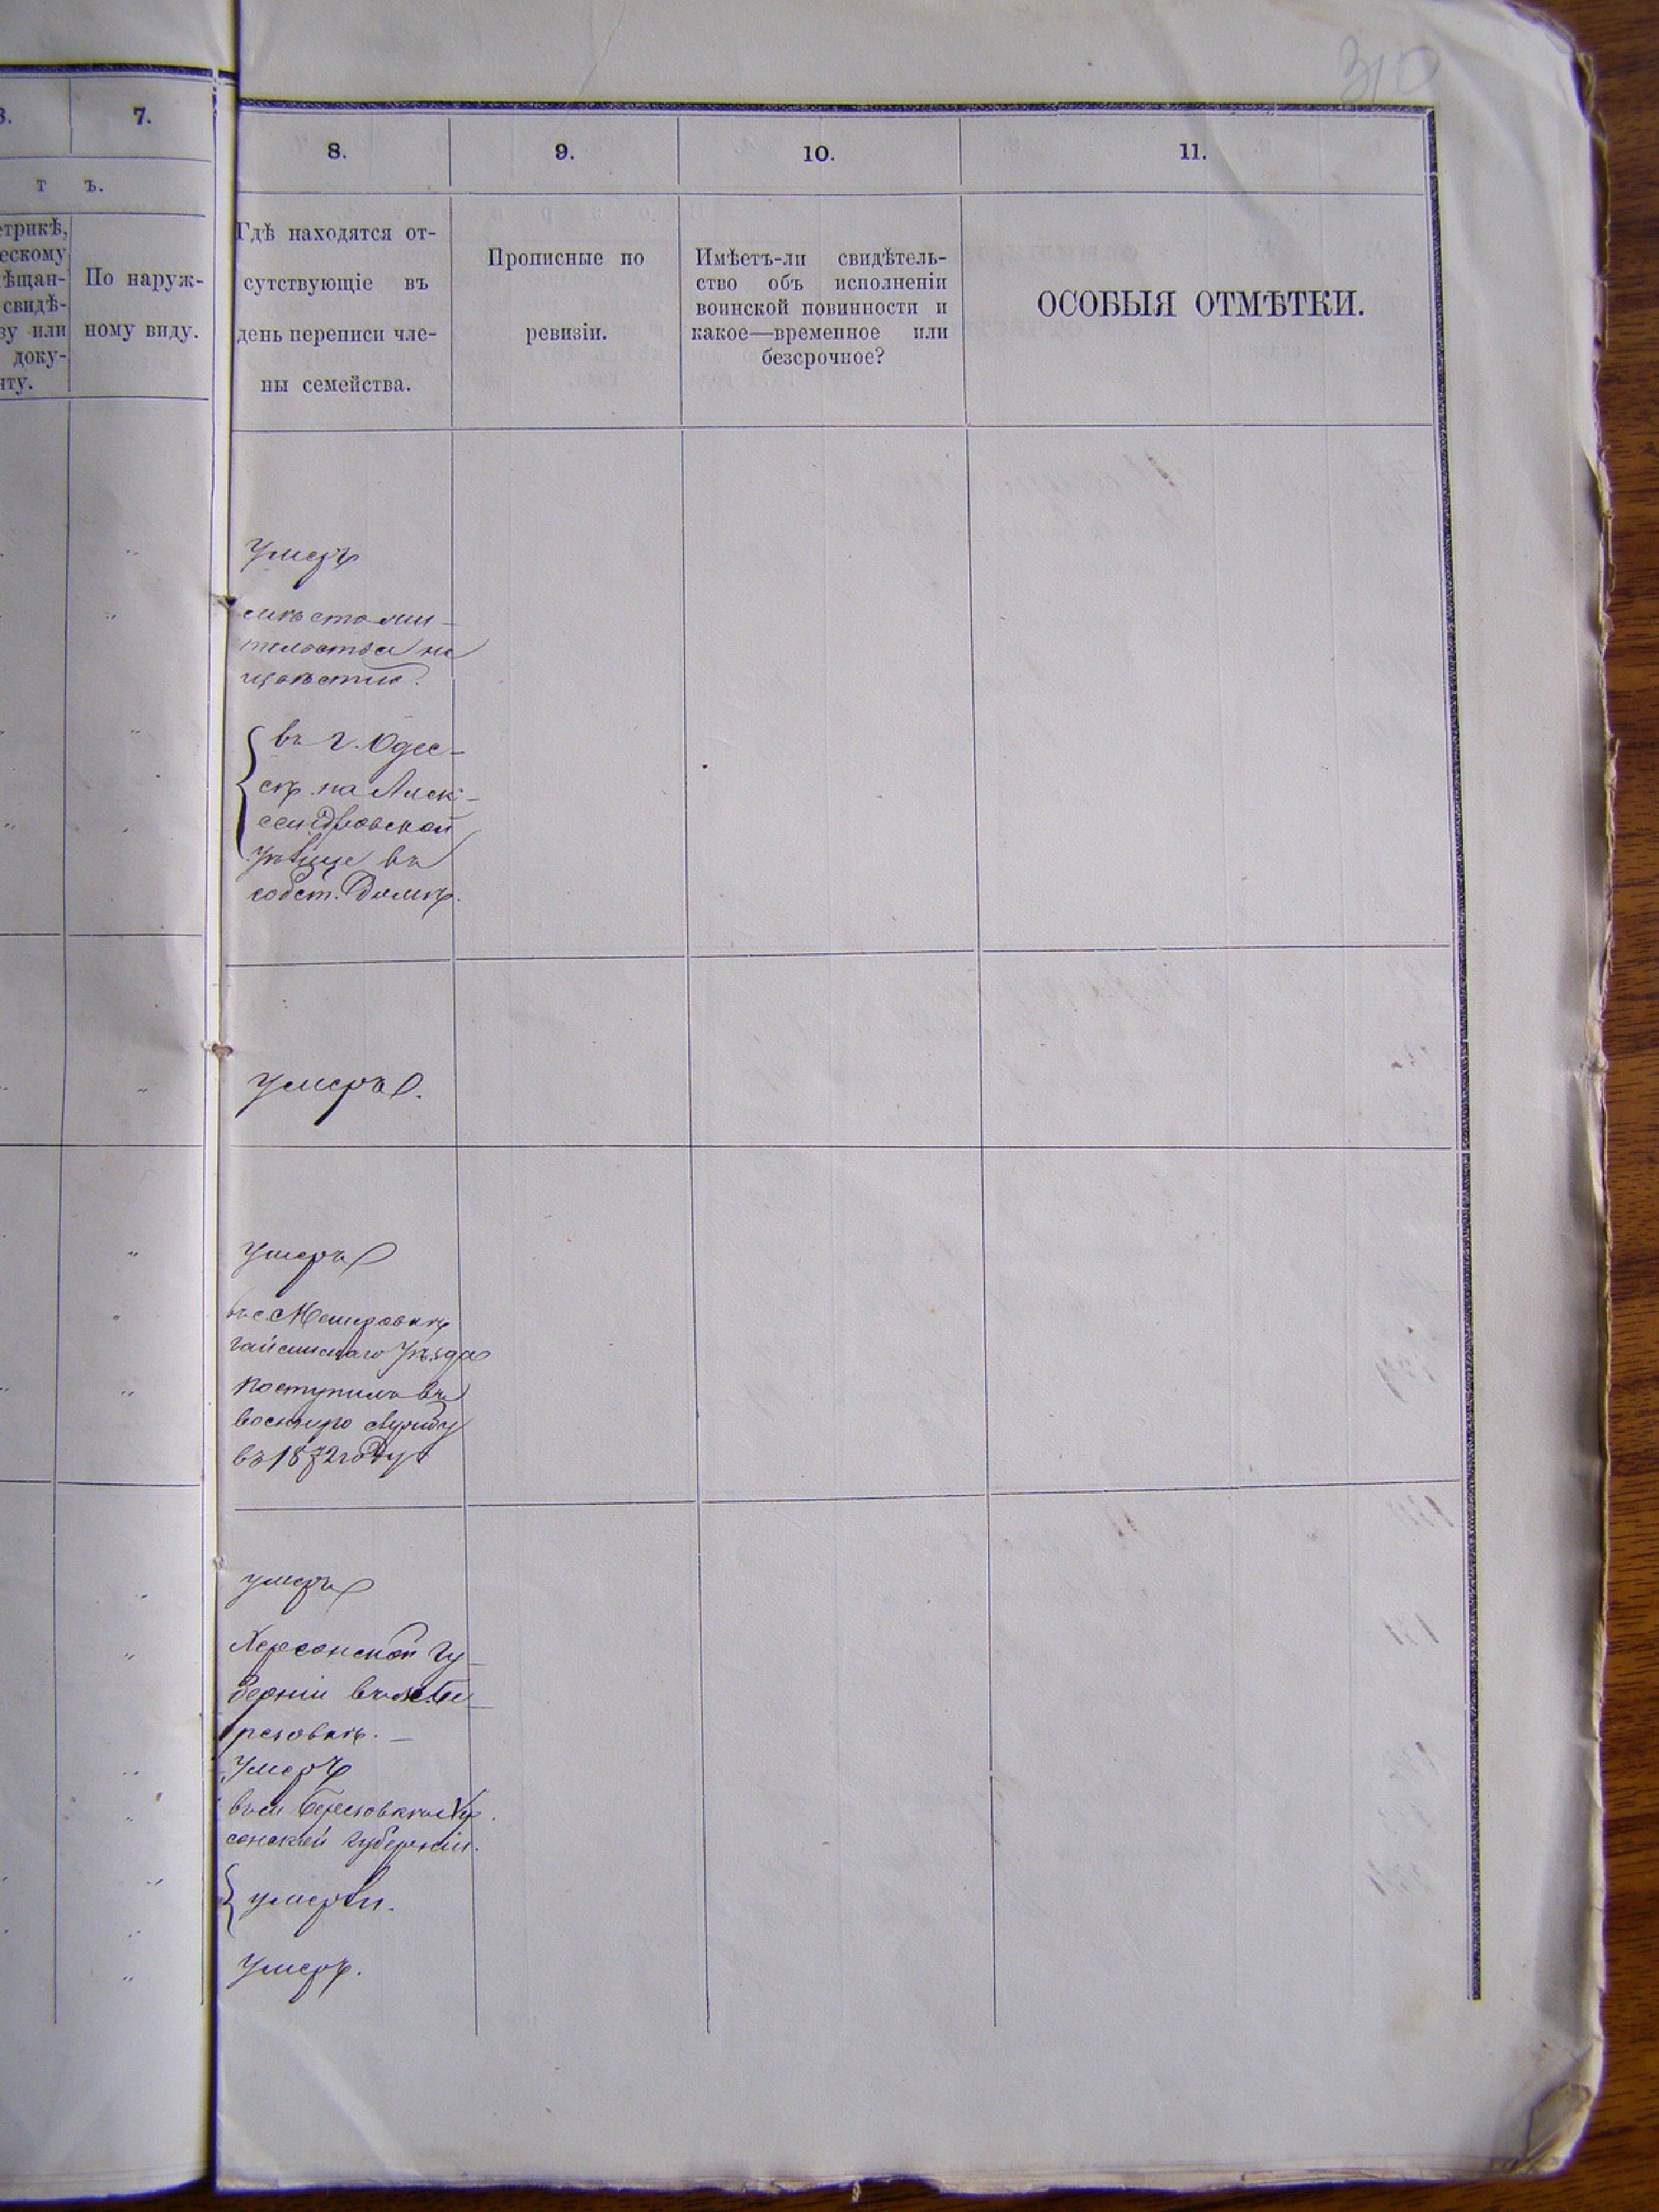 310
7.
8.
9.
10.
11.
т ъ.
етрикѣ,
ескому
ѣщан-
свидѣ-
зу или
доку-
нту.
По наруж-
ному виду.
Гдѣ находятся от-
сутствующіе въ
день переписи чле-
ны семейства.
Прописные по
ревизіи.
Имѣетъ-ли свидѣтель-
ство объ исполненіи
воинской повинности и
какое—временное или
безсрочное?
ОСОБЫЯ ОТМѢТКИ.
Умеръ
мѣсто жи-
тельства не
извѣстно.
въ г. Одес-
сѣ на Алек-
сандровской
улице въ
собст. Домѣ.
Умеръ.
Умеръ
въ с. Метровкѣ
Гайсинскаго Уѣзда
поступилъ въ
военную службу
въ 1872 году
умеръ
Херсонской Гу-
берніи въ м. Бе-
резовкѣ. —
Умеръ
въ м. Березовкѣ Хер-
сонской Губерніи.
умерли.
Умеръ.